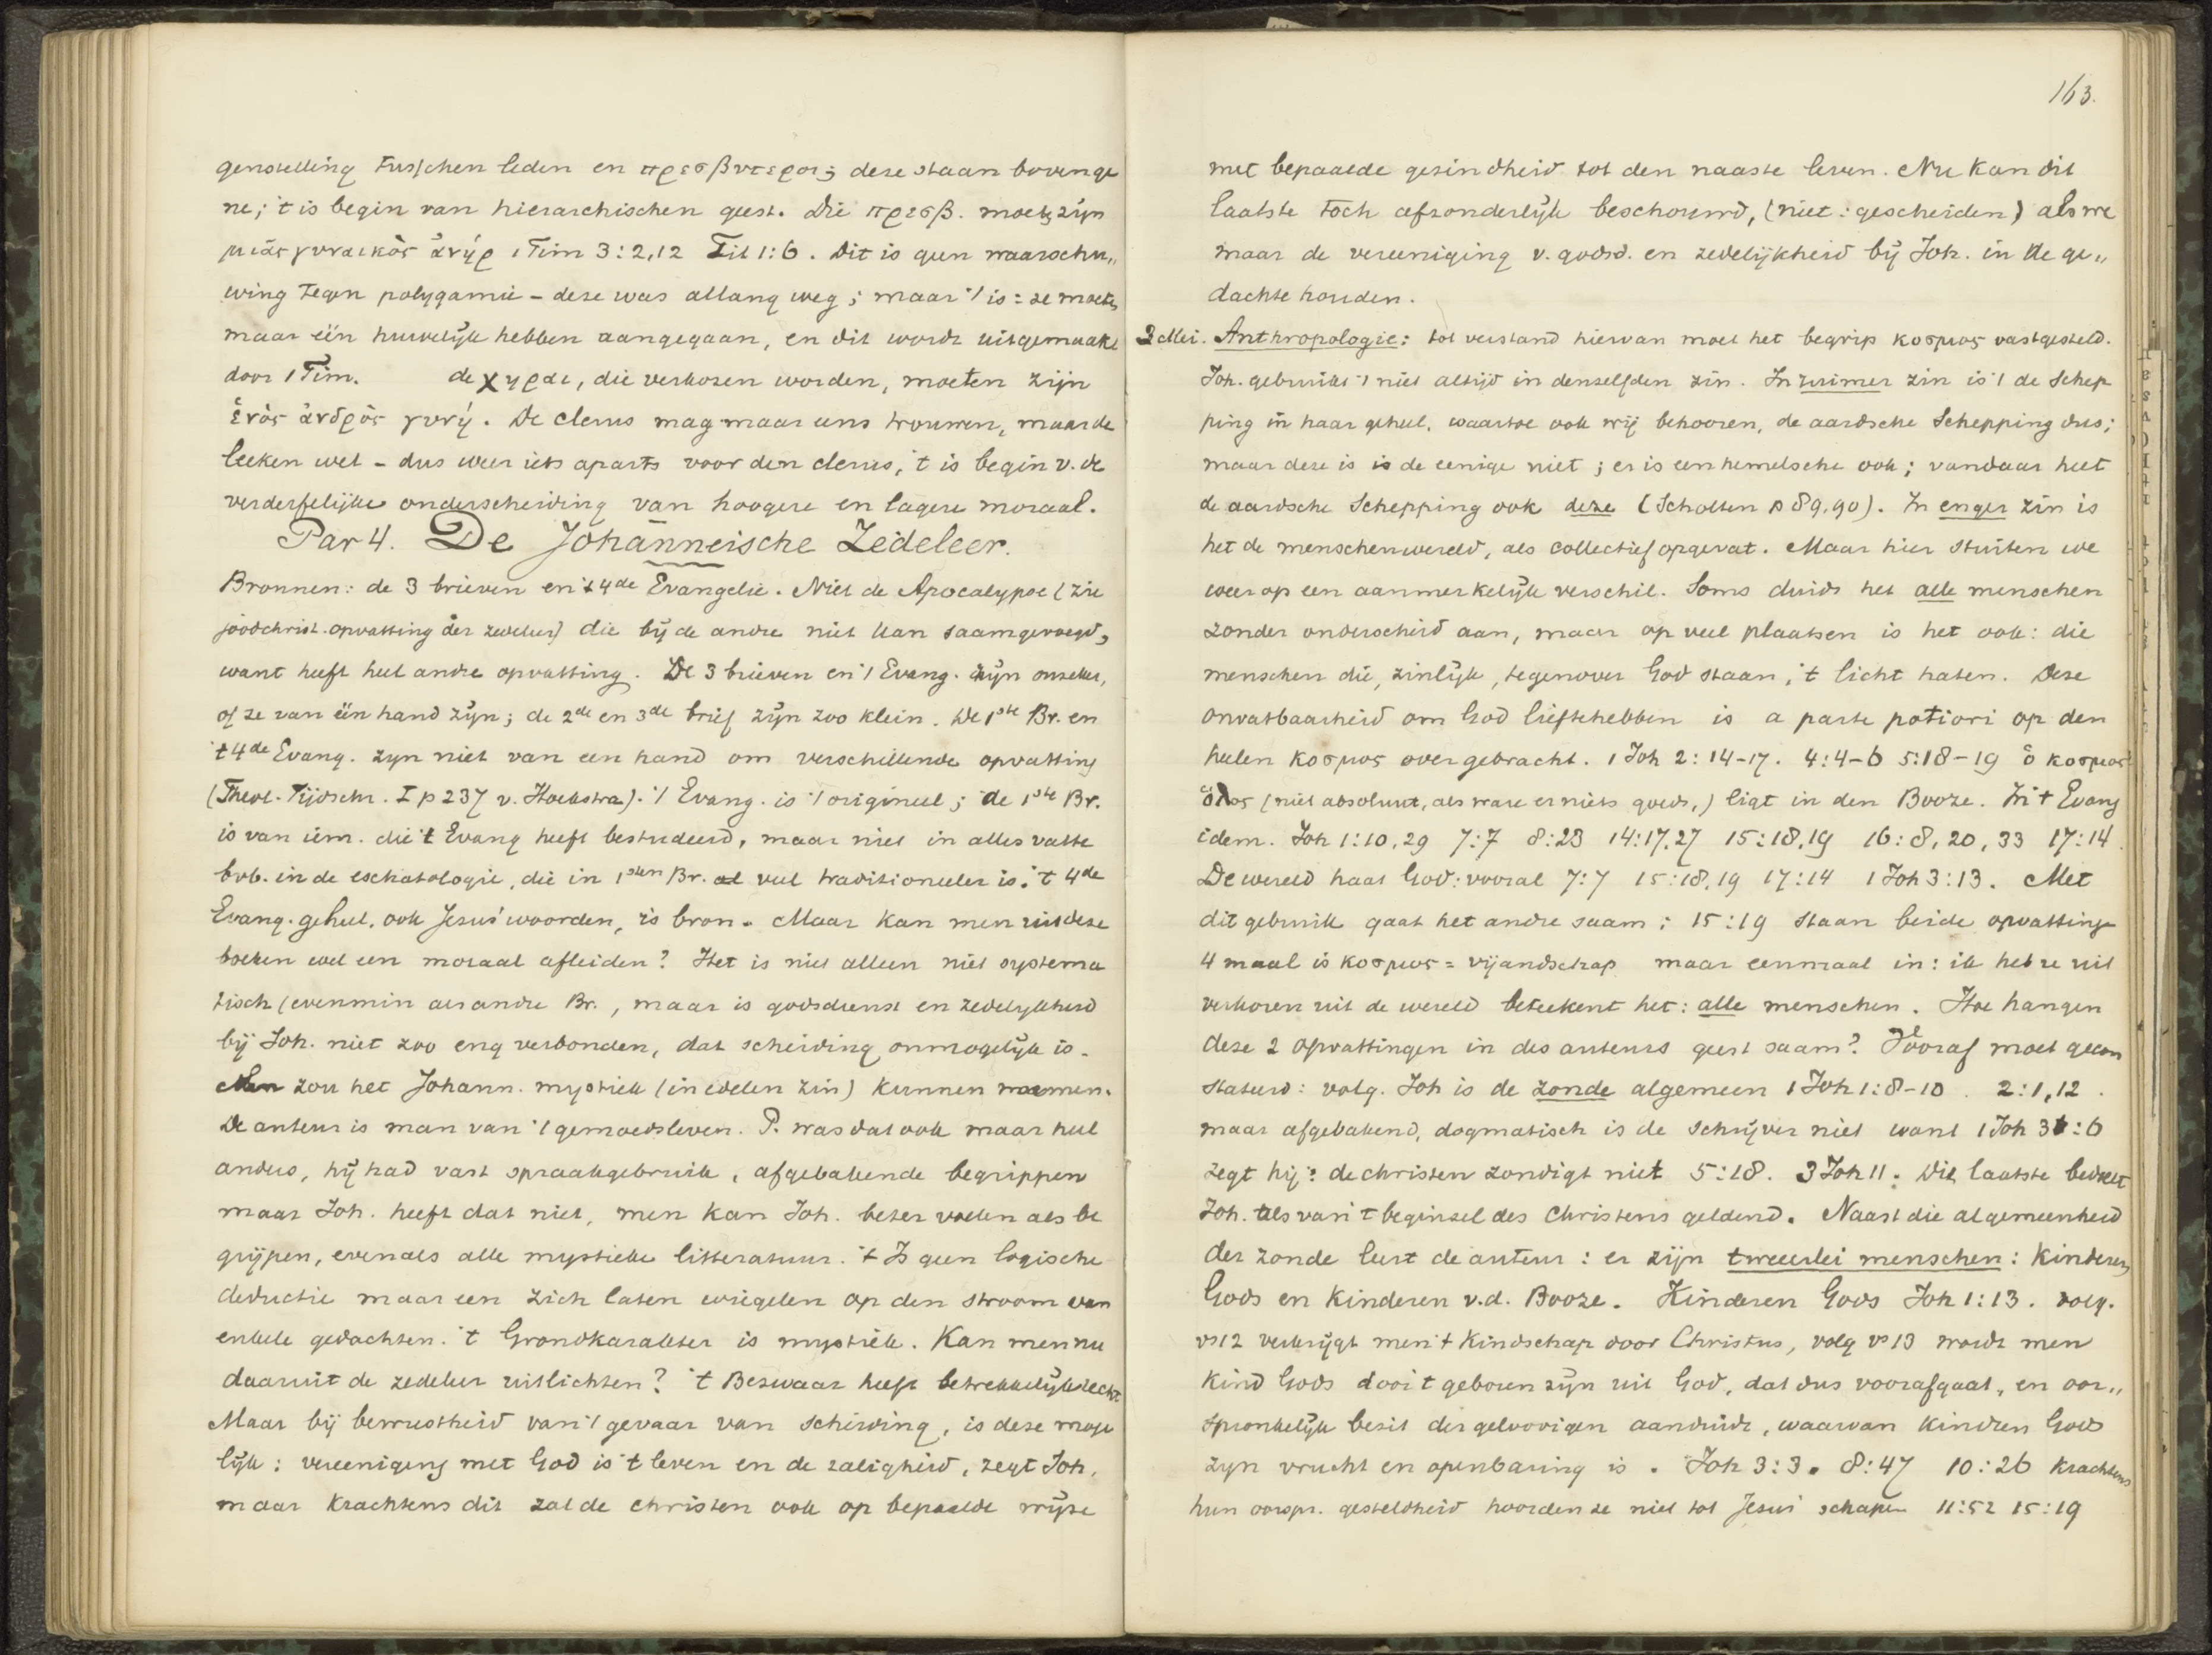 genstelling tusschen leden en πρεσβυτεροι; deze staan bovenge
ne; 't is begin van hierarchischen geest. Die πρεσβ. moeten zijn
μιᾶς γυναικὸς ἀνήρ 1 Tim 3:2,12 Tit 1:6. Dit is geen waarschu„
wing tegen polygamie – deze was allang weg; maar 't is: ze moeten
maar één huwelijk hebben aangegaan, en dit wordt uitgemaakt
door 1 Tim. de χηραι, die verkozen worden, moeten zijn
ἑνὸς ἀνδρὸς γυνή. De clerus mag maar eens trouwen, maar de
leeken wel – dus weer iets aparts voor den clerus, 't is begin v. de
verderfelijke onderscheiding van hoogere en lagere moraal.
Par 4. De Johanneische Zedeleer.
Bronnen: de 3 brieven en 't 4de Evangelie. Niet de Apocalypse (zie
joodchrist. opvatting der zedeleer) die bij de andre niet kan saamgevoegd,
want heeft heel andre opvatting. De 3 brieven en 't Evang. zijn onzeker,
of ze van één hand zijn; de 2de en 3de brief zijn zoo klein. De 1ste Br. en
't 4de Evang. zyn niet van een hand om verschillende opvatting
(Theol. Tijdschr. I p 237 v. Hoekstra). 't Evang. is 't origineel; de 1ste Br.
is van iem. die 't Evang heeft bestudeerd, maar niet in alles vatte
bvb. in de eschatologie, die in 1sten Br. veel traditioneeler is. 't 4de
Evang. geheel, ook Jesus' woorden, is bron. Maar kan men uit deze
boeken wel een moraal afleiden? Het is niet alleen niet systema
tisch (evenmin als andre Br., maar is godsdienst en zedelykheid
bij Joh. niet zoo eng verbonden, dat scheiding onmogelijk is.
Men zou het Johann. mystiek (in edelen zin) kunnen noemen.
De auteur is man van 't gemoedsleven. P. was dat ook maar heel
anders, hij had vast spraakgebruik, afgebakende begrippen
maar Joh. heeft dat niet, men kan Joh. beter voelen als be
grijpen, evenals alle mystieke litteratuur. 't Is geen logische
deductie maar een zich laten wiegelen op den stroom van
enkele gedachten. 't Grondkarakter is mystiek. Kan men nu
daaruit de zedeleer uitlichten? 't Bezwaar heeft betrekkelijk recht.
Maar bij bewustheid van 't gevaar van scheiding, is deze moge
lijk: vereeniging met God is 't leven en de zaligheid, zegt Joh.
maar krachtens dit zal de christen ook op bepaalde wijze
163.
met bepaalde gezindheid tot den naaste leven. Nu kan dit
laatste toch afzonderlijk beschouwd, (niet: gescheiden) als we
maar de vereeniging v. godsd. en zedelijkheid bij Joh. in de ge„
dachte houden.
3 Mei. Anthropologie: tot verstand hiervan moet het begrip κοσμος vastgesteld.
Joh. gebruikt 't niet altijd in denzelfden zin. In ruimer zin is 't de Schep
ping in haar geheel, waartoe ook wij behooren, de aardsche Schepping dus;
maar deze is is de eenige niet; er is een hemelsche ook; vandaar heet
de aardsche Schepping ook deze (Scholten p 89,90). In enger zin is
het de menschenwereld, als collectief opgevat. Maar hier stuiten we
weer op een aanmerkelijk verschil. Soms duidt het alle menschen
zonder onderscheid aan, maar op veel plaatsen is het ook: die
menschen die, zinlijk, tegenover God staan, 't licht haten. Deze
onvatbaarheid om God lief te hebben is a parte potiori op den
heelen κοσμος overgebracht. 1 Joh 2:14-17. 4:4-6 5:18-19 ὁ κοσμος
ὁλος (niet absoluut, als ware er niets goeds,) ligt in den Booze. In 't Evang
idem. Joh 1:10,29 7:7 8:23 14:17,27 15:18,19 16:8,20,33 17:14.
De wereld haat God: vooral 7:7 15:18,19 17:14 1 Joh 3:13. Met
dit gebruik gaat het andre saam; 15:19 staan beide opvattinge
4 maal is κοσμος = vijandschap maar eenmaal in: ik heb ze uit
verkoren uit de wereld beteekent het: alle menschen. Hoe hangen
deze 2 opvattingen in des auteurs geest saam? Vooraf moet gecon
stateerd: volg. Joh is de zonde algemeen 1 Joh 1:8-10. 2:1,12.
maar afgebakend, dogmatisch is de schrijver niet want 1 Joh 3:6
zegt hij: de christen zondigt niet 5:18. 3 Joh 11. Dit laatste bedoelt
Joh. als van 't beginsel des Christens geldend. Naast die algemeenheid
der zonde leert de auteur: er zijn tweeerlei menschen: Kinderen
Gods en Kinderen v.d. Booze. Kinderen Gods Joh 1:13. volg.
vs 12 verkrijgt men 't Kindschap door Christus, volg vs 13 wordt men
Kind Gods door 't geboren zijn uit God, dat dus voorafgaat, en oor„
spronkelijk bezit der geloovigen aanduidt, waarvan kindren Gods
zyn vrucht en openbaring is. Joh 3:3. 8:47 10:26 krachtens
hun oorspr. gesteldheid hoorden ze niet tot Jesus' schapen 11:52 15:19